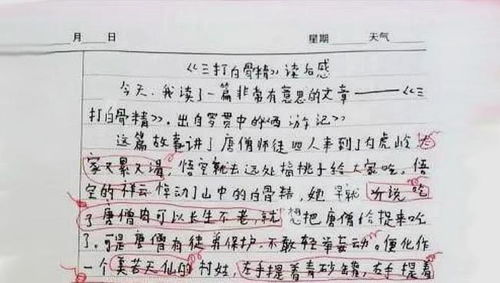 月 日 星期 天气
《三打白骨精》读后感
今天,我读了一篇非常有意思的文章——《三
打白骨精》,出自罗贯中的《西游记》
这篇故事讲了唐僧师徒四人来到了白虎岭,大
家又累又渴,悟空就去远处摘桃子给大家吃。悟
空的祥云惊动了山中的白骨精,她早就听说吃
了唐僧肉可以长生不老,就想把唐僧给捉来吃
了,可是唐僧有徒弟保护,不敢轻举妄动。便化作
一个美若天仙的村姑,左手提着青砂罐,右手提着